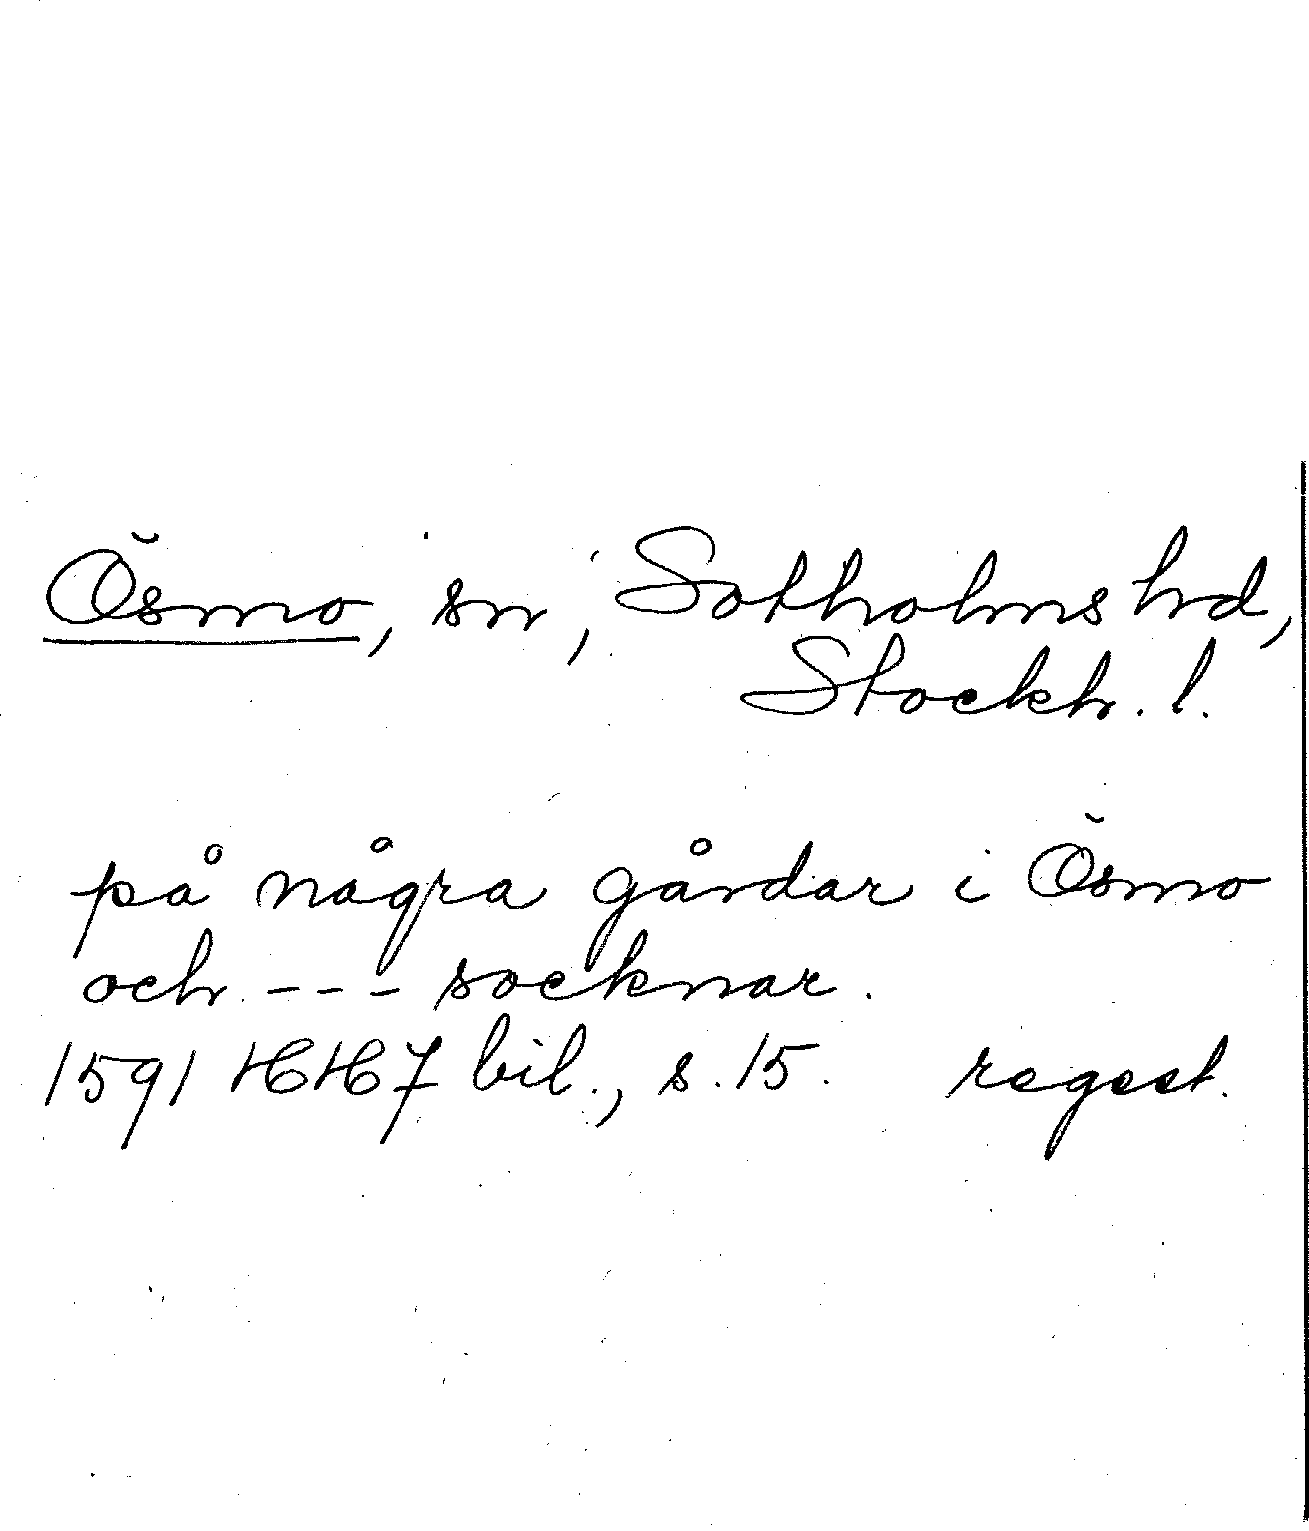 Ösmo, sn, Sotholms hd,
Stockh. l.
på några gårdar i Ösmo
och --- socknar.
1591 HH 7 bil., s. 15. regest.